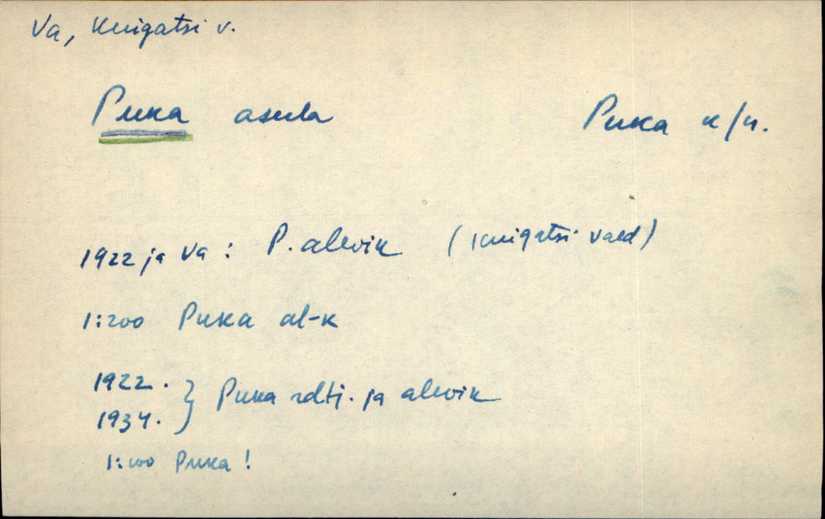 Va, Kuigatsi v.
Puka asula
Puka k/n.
1922 ja Va: P. alevik (Kuigatsi vald)
1:200 Puka al-k
1922.
1934. } Puka rdtj. ja alevik
1:100 Puka!